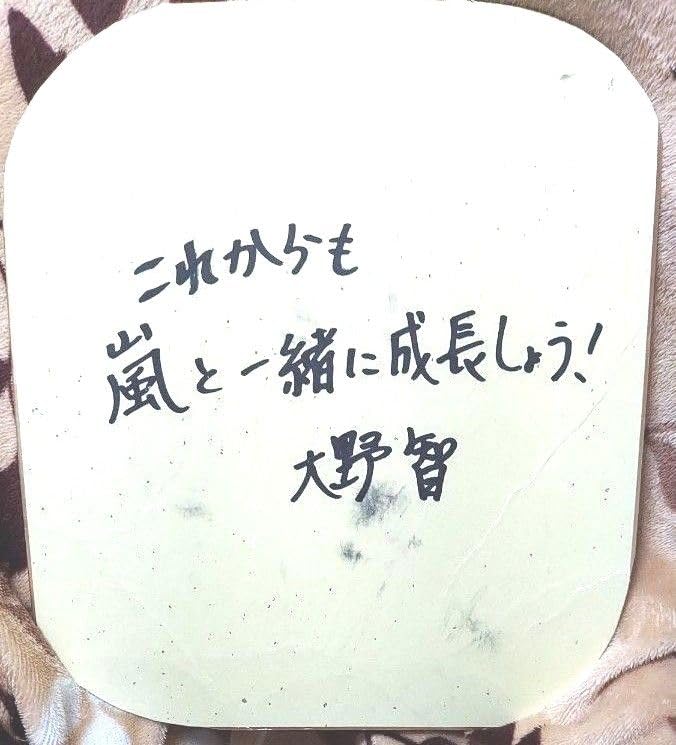 これからも
嵐と一緒に成長しょう!
大野智